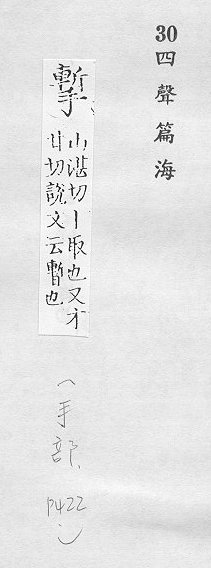 30 四聲篇海
摲
山湛切丨取也又才
甘切說文云暫也
(手部, P422)